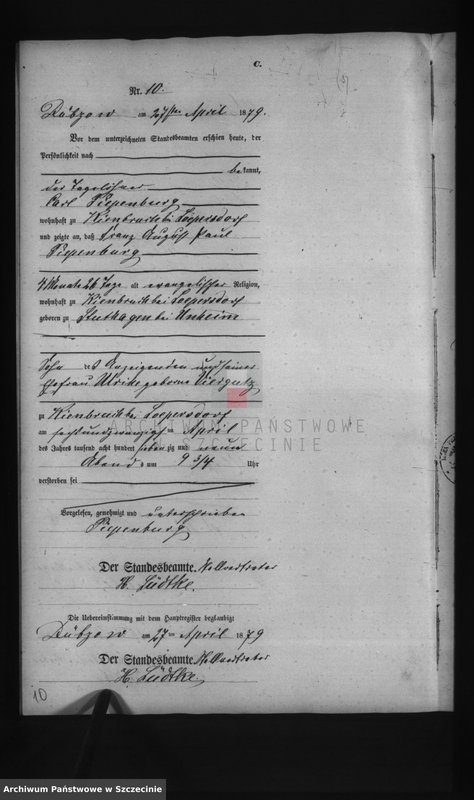 C.
Nr. 10.
Rübzow am 27ten April 1879.
Vor dem unterzeichneten Standesbeamten erschien heute, der
Persönlichkeit nach
bekannt,
der Tagelöhner
Carl Piepenburg
wohnhaft zu Kienbruch bei Loepersdorf
und zeigte an, daß Franz August Paul
Piepenburg
4 Monate 26 Tage alt evangelischer Religion,
wohnhaft zu Kienbruch bei Loepersdorf
geboren zu bei
Sohn des Anzeigenden und seiner
Ehefrau Ulrike geborne Viergutz
zu Kienbruch bei Loepersdorf
am sechsundzwanzigsten April
des Jahres tausend acht hundert siebenzig und neun
Abends um 9 3/4 Uhr
verstorben sei
Vorgelesen, genehmigt und unterschrieben
Piepenburg
Der Standesbeamte.
H. Lüdtke.
Die Uebereinstimmung mit dem Hauptregister beglaubigt
Rübzow am 27ten April 1879
Der Standesbeamte.
H. Lüdtke.
10
ARCHIWUM PAŃSTWOWE
W SZCZECINIE
Archiwum Państwowe w Szczecinie